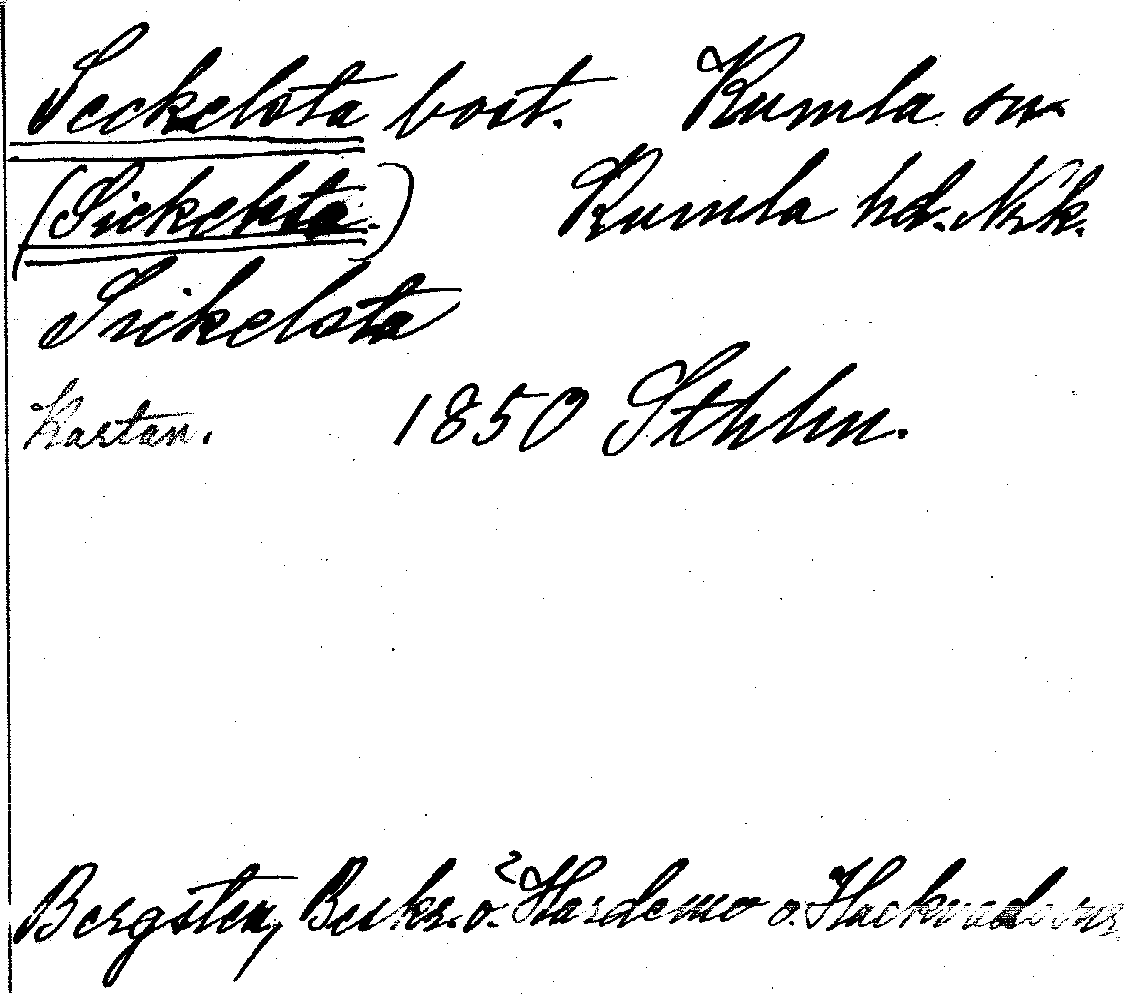 Seckelsta bost. Kumla sn.
(Sickelsta.) Kumla hd. Nrk.
Sickelsta
Kartan. 1850 Sthlm.
Bergsten, Beskr. ö. Hardemo o. Hackvads snr